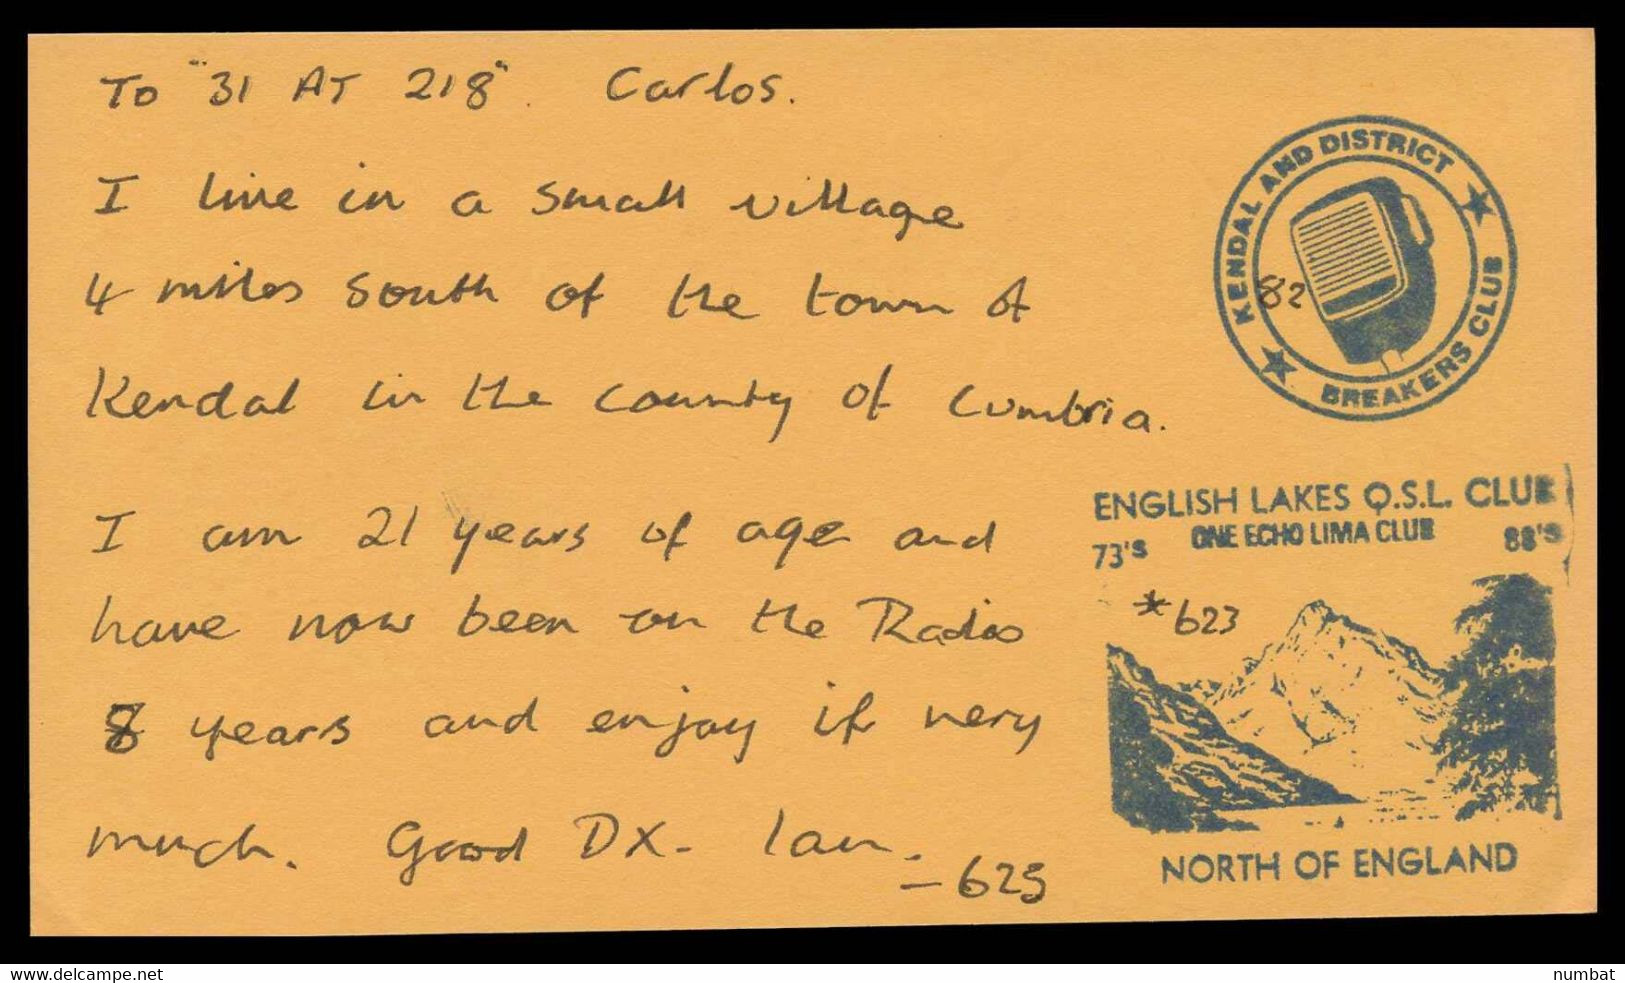 To "31 AT 218". Carlos.
I live in a small village
4 miles south of the town of
Kendal in the county of Cumbria.
I am 21 years of age and
have now been on the Radio
8 years and enjoy it very
much. Good DX- Ian.
- 623
KENDAL AND DISTRICT
BREAKERS CLUB
82
ENGLISH LAKES Q.S.L. CLUB
ONE ECHO LIMA CLUB
73's 88's
*623
NORTH OF ENGLAND
www.delcampe.net
numbat